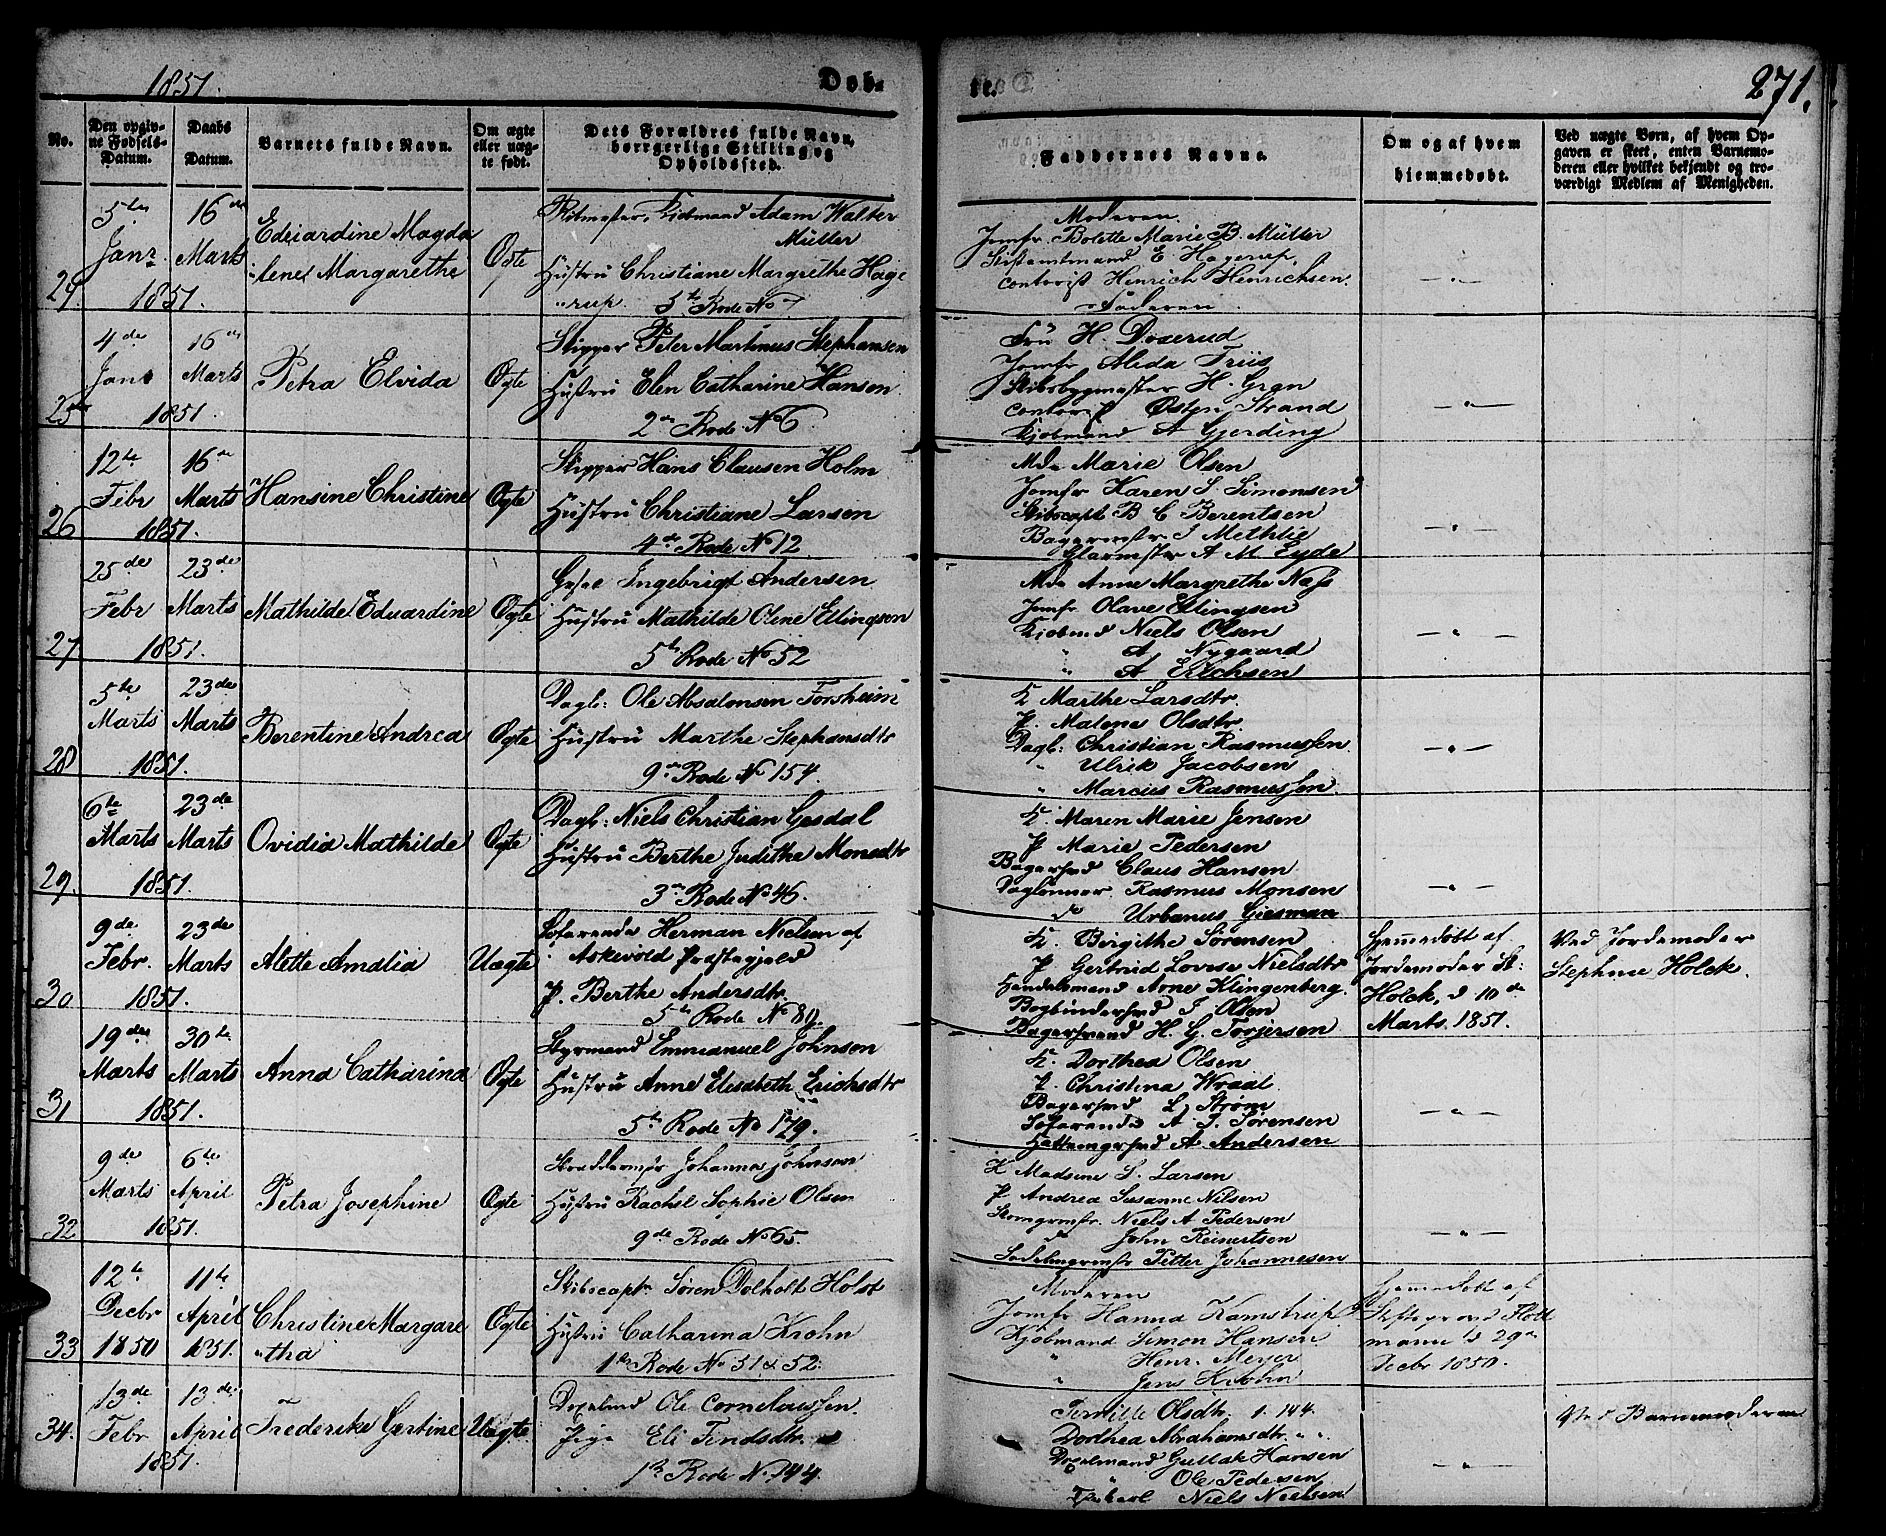 1851.
Døb-
te.
271.
No.
Den opgiv-
ne Fødsels-
Datum.
Daabs
Datum.
Barnets fulde Navn.
Om ægte
eller uæg-
te født.
Dets Forældres fulde Navn,
borgerlige Stilling og
Opholdssted.
Faddernes Navne.
Om og af hvem
hjemmedøbt.
Ved uægte Børn, af hvem Op-
gaven er skeet, enten Barnemo-
deren eller hvilket bekjendt og tro-
værdigt Medlem af Menigheden.
5te
Janr
1851.
16de
Marts
Eduardine Magda
lene Margarethe
Ægte
Adam Walter
Müller
Hustru Christiane Margrethe Hage
rup. 5te Rode No 7
Moderen
Jomfr. Bolette Marie B. Müller
Stiftamtmand E. Hagerup.
Contorist Henrich Henrichsen.
Faderen
25
4de
Janr
1851.
16de
Marts
Petra Elvida
Ægte
Skipper Peter Martinus Stephansen
Hustru Elen Catharine Hansen
2den Rode No 6
Fru H.
Jomfr Alida Friis
Skibsbygmester H. Gran
Contorist Østen Strand
Kjøbmand A Gjerding
26
12te
Febr
1851.
16de
Marts
Hansine Christine
Ægte
Skipper Hans Clausen Holm
Hustru Christiane Larsen
4de Rode No 12
Mde Marie Olsen
Jomfr Karen S. Simonsen
Skibscapt B C Berentsen
Bagermstr J Methlie
Glarmster A M Eyde
27
25de
Febr
1851.
23de
Marts
Mathilde Eduardine
Ægte
Ingebrigt Andersen
Hustru Mathilde Olene Ellingsen
5te Rode No 52
Mde Anne Margrethe Næss
Jomfr Olave Ellingsen
Kjøbmd Niels Olsen
" A Nygaard
" A Erichsen
28
5te
Marts
1851.
23de
Marts
Berentine Andrea
Ægte
Dagl: Ole Absalonsen Forsheim
Hustru Marthe Stephansdtr
9de Rode No 154.
K Marthe Larsdtr.
P. Malene Olsdtr
Dagl: Christian Rasmussen
" Ulrik Jacobsen
" Marcus Rasmussen.
29.
6te
Marts
1851.
23de
Marts
Ovidia Mathilde
Ægte
Dagl: Niels Christian Gesdal
Hustru Berthe Juditha Monsdtr
3die Rode No 46.
K. Maren Marie Jensen
P Marie Pedersen
Bagersvd Claus Hansen
Dagløner Rasmus Monsen
do Urbanus Giesman
30
9de
Febr.
1851.
23de
Marts
Alette Amalia
Uægte
Søfarende Herman Nielsen af
Askevold Præstegjeld
P. Berthe Andersdtr
5te Rode No 89.
K. Birgithe Sørensen
P Gertrud Lovise Nielsdtr
Handelsmand Arne Klingenberg.
Bogbindersvd J. Olsen
Bagersvend H. G. Torjersen
Hjemmedøbt af
Jordemoder St:
Holck, d 10de
Marts 1851.
Ved Jordemoder
Stephnie Holck.
31
19de
Marts
1851.
30te
Marts
Anna Catharina
Ægte
Styrmand Emmanuel Johnsen
Hustru Anne Elisabeth Erichsdtr
5te Rode No 179.
K. Dorthea Olsen
P. Christina Wraal
Bagersvd L. Strøm
Søfarende A. J. Sørensen
A. Andersen
32
9de
Marts
1851.
6te
April
Petra Josephine
Ægte
Johannes Johnsen
Hustru Rachel Sophie Olsen
9de Rode No 65.
K Madame S. Larsen
P Andrea Susanne Nilsen
Skomgrmstr. Niels A Pedersen
do John Reinertsen
Sadelmgrmstr Petter Johannesen
33
12te
Decbr
1850
11te
April
1851.
Christine Margare
tha
Ægte
Skibscaptn Søren Dolholt Holst
Hustru Catharina Krohn
1ste Rode No 51 & 52.
Moderen
Jomfr Hanna Kamstrup
Kjøbmand Simon Hansen
" Henr. Meyer
" Jens Krohn
Hjemmedøbt af
Stiftsprovst Flott
mann d 29de
Decbr 1850.
34.
13de
Febr
1851.
13de
April
Frederike Gertine
Uægte
Ole Corneliussen
Pige Eli Findsdtr.
1ste Rode No. 144.
Pernille Olsdtr. 1. 144.
Dorthea Abrahamsdtr. " .
Gullak Hansen
" Ole Pedersen
Niels Nielsen
Ved Barnemoderen